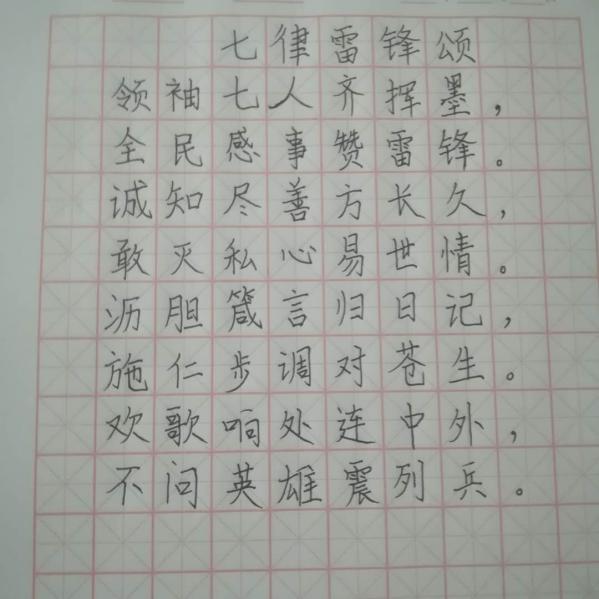 七律雷锋颂
领袖七人齐挥墨，
全民感事赞雷锋。
诚知尽善方长久，
敢灭私心易世情。
沥胆箴言归日记，
施仁步调对苍生。
欢歌响处连中外，
不问英雄震列兵。